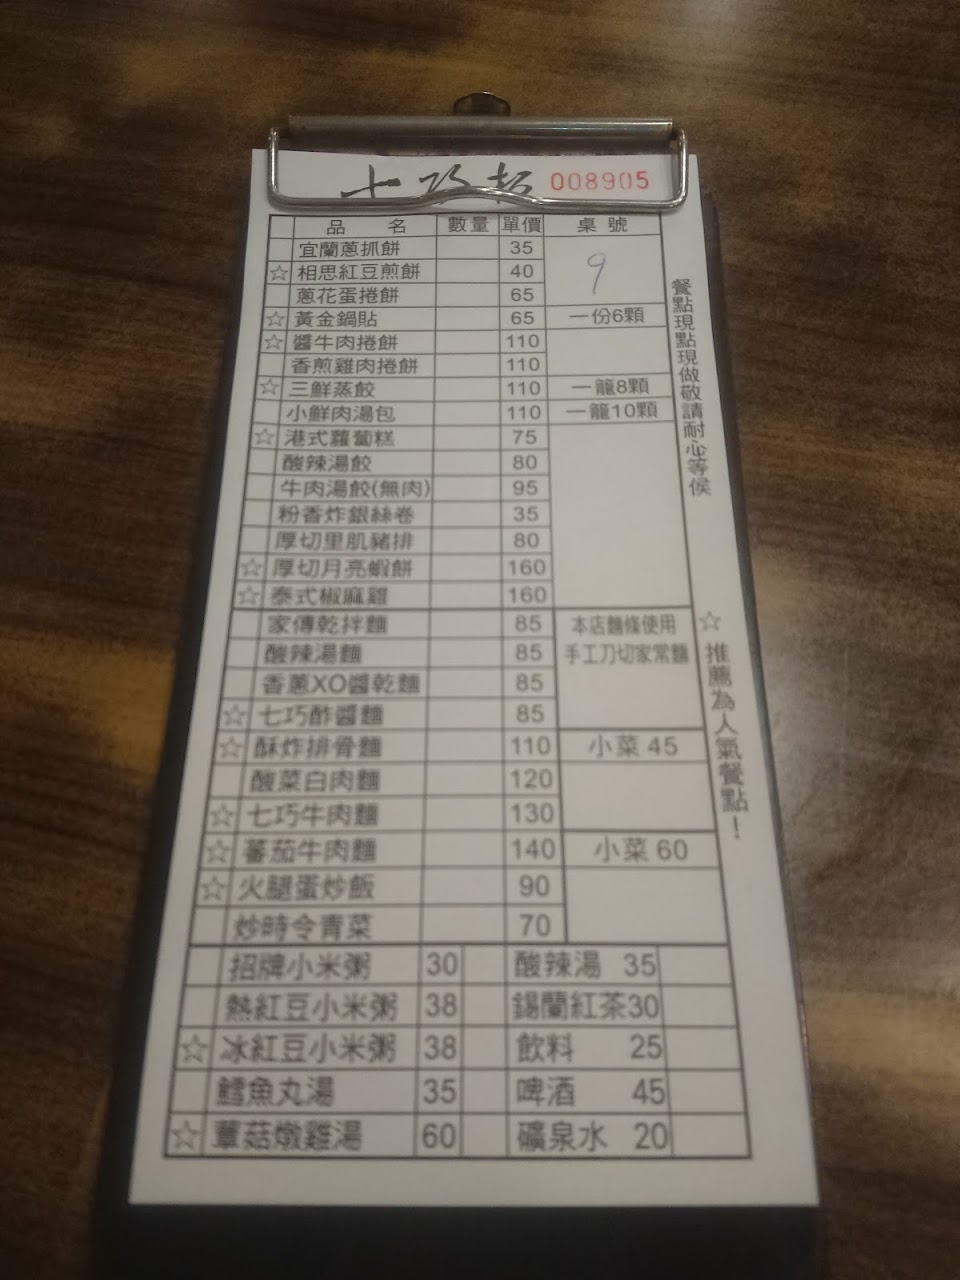 七巧 008905
品名 數量 單價 桌號
宜蘭蔥抓餅 35 9
☆ 相思紅豆煎餅 40
蔥花蛋捲餅 65
☆ 黃金鍋貼 65 一份6顆
☆ 醬牛肉捲餅 110
香煎雞肉捲餅 110
☆ 三鮮蒸餃 110 一籠8顆
小鮮肉湯包 110 一籠10顆
☆ 港式蘿蔔糕 75
酸辣湯餃 80
牛肉湯餃(無肉) 95
粉香炸銀絲卷 35
厚切里肌豬排 80
☆ 厚切月亮蝦餅 160
☆ 泰式椒麻雞 160
家傳乾拌麵 85 本店麵條使用
酸辣湯麵 85 手工刀切家常麵
香蔥XO醬乾麵 85
☆ 七巧酢醬麵 85
☆ 酥炸排骨麵 110 小菜 45
酸菜白肉麵 120
☆ 七巧牛肉麵 130
☆ 蕃茄牛肉麵 140 小菜 60
☆ 火腿蛋炒飯 90
炒時令青菜 70
招牌小米粥 30 酸辣湯 35
熱紅豆小米粥 38 錫蘭紅茶30
☆ 冰紅豆小米粥 38 飲料 25
鱈魚丸湯 35 啤酒 45
☆ 蕈菇燉雞湯 60 礦泉水 20
餐點現點現做敬請耐心等侯
☆推薦為人氣餐點！